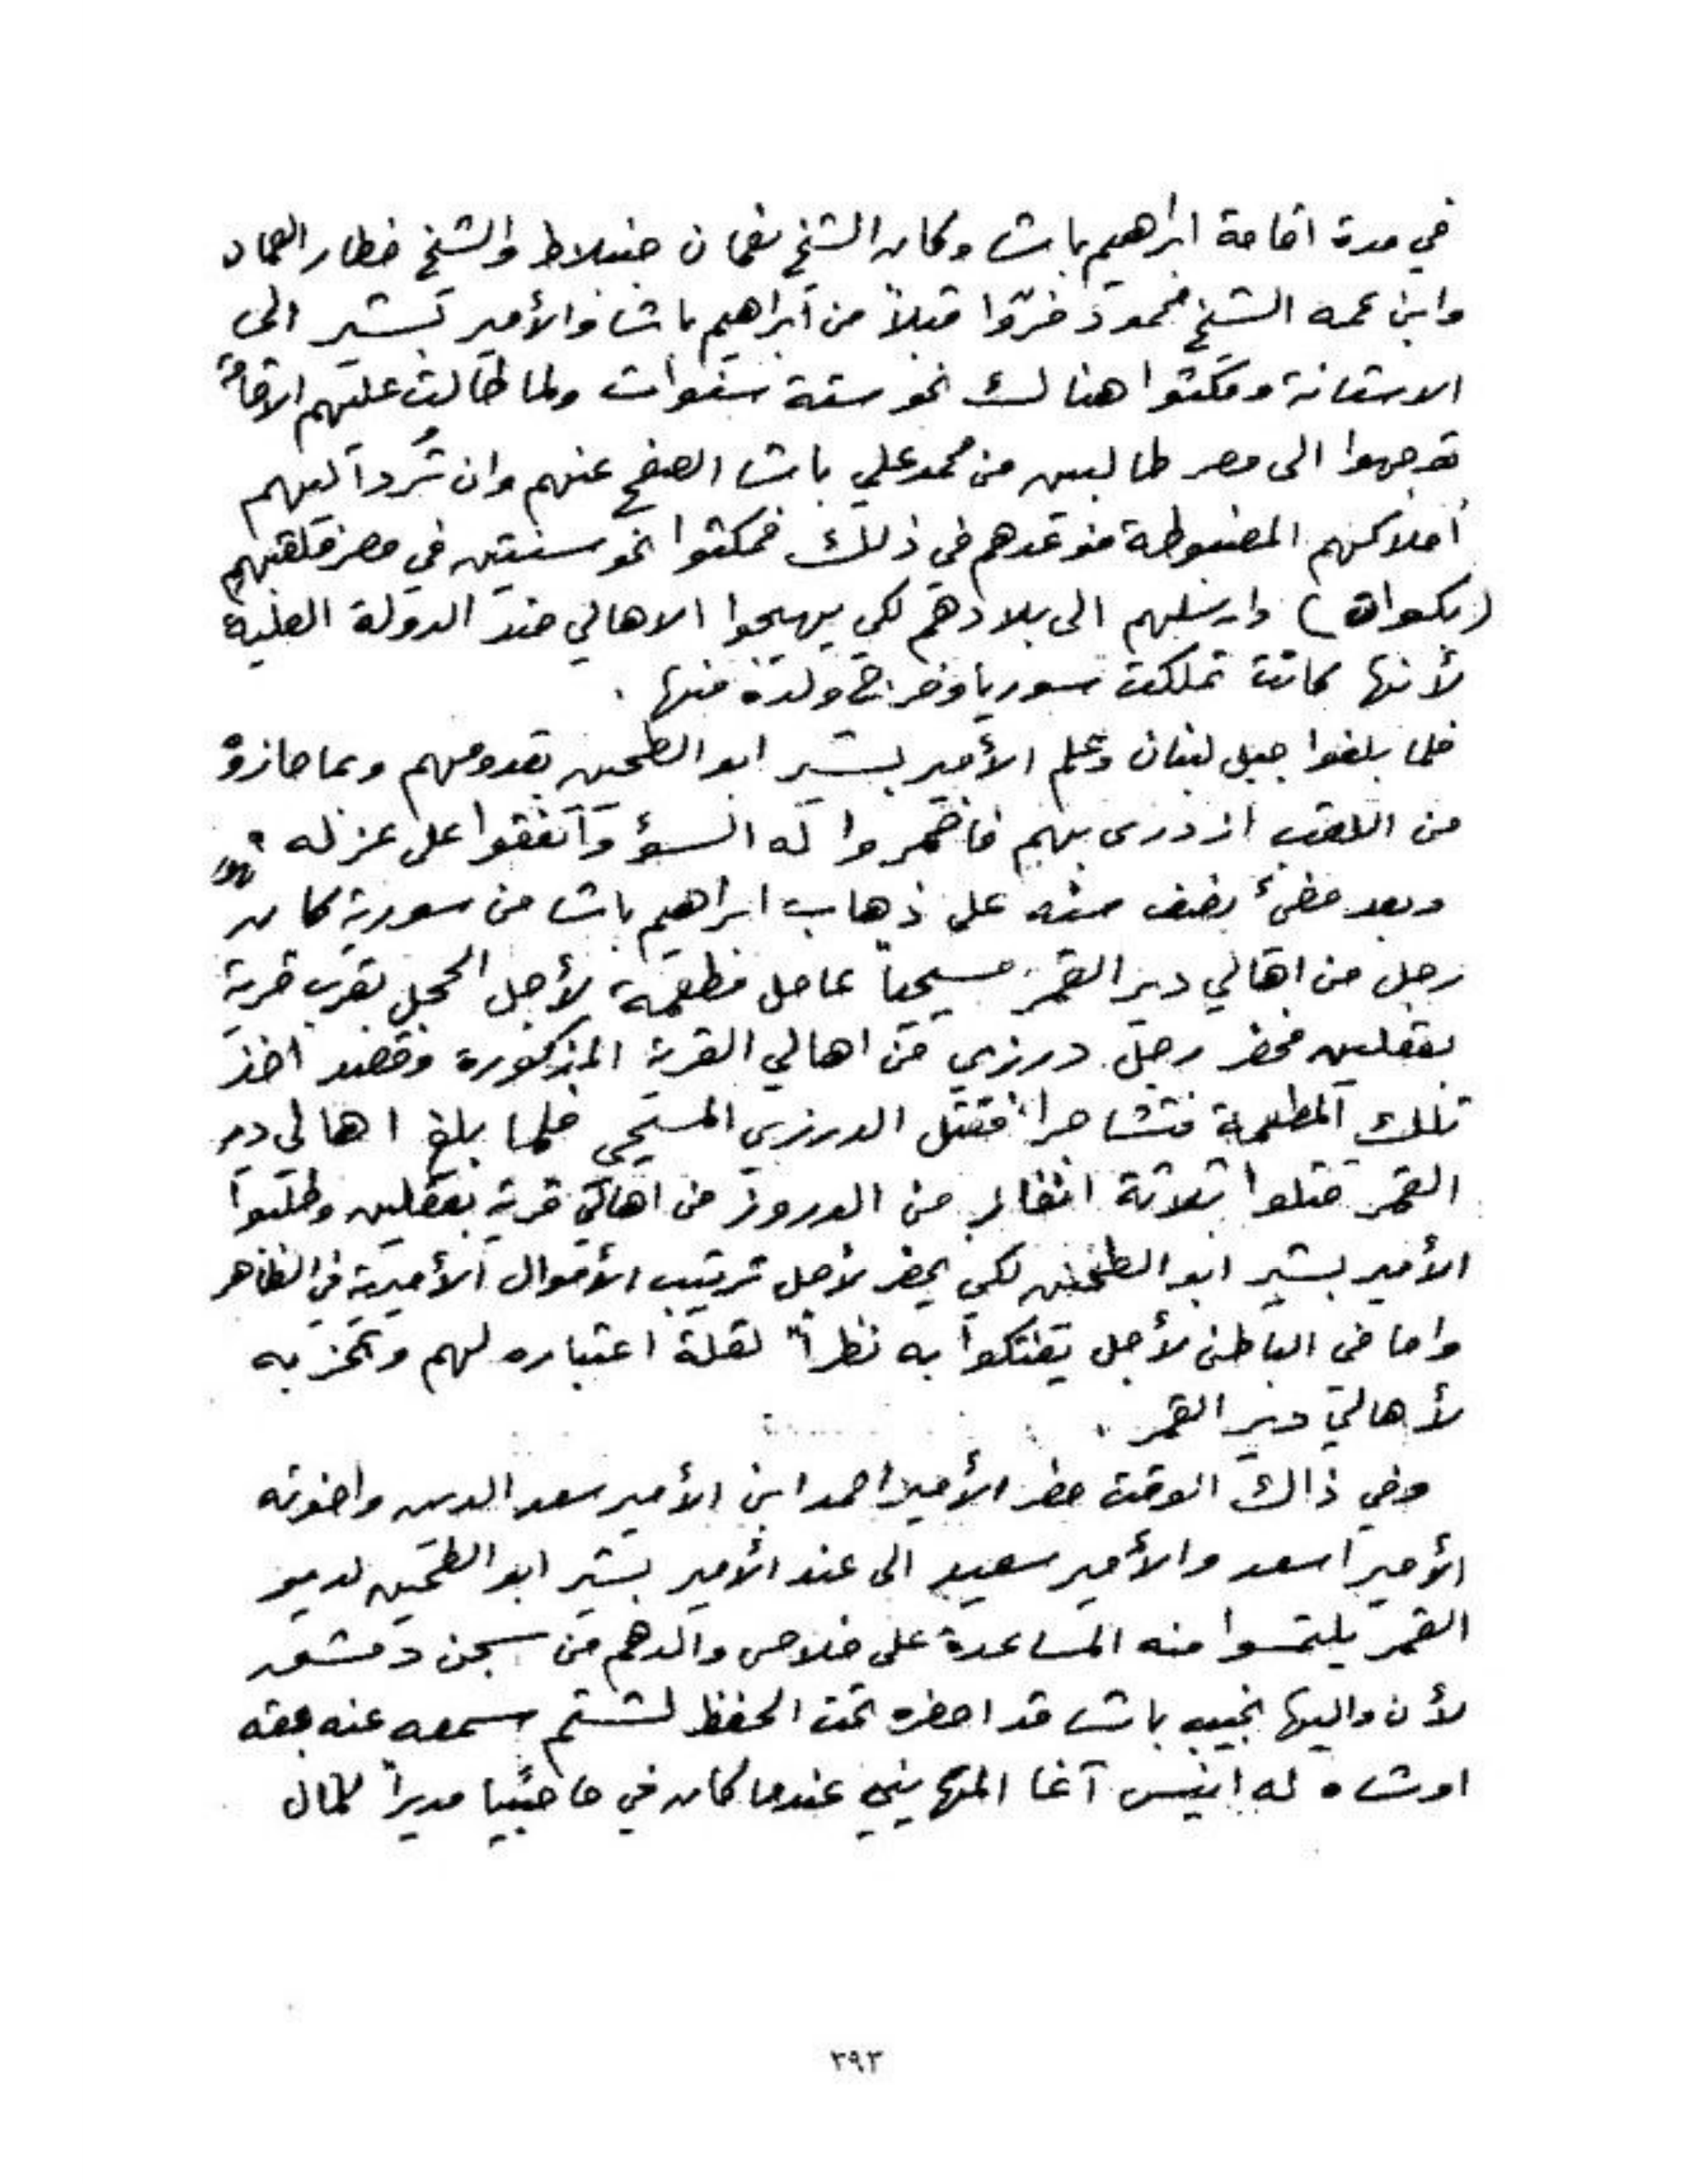 في مدة اقامة ابراهيم باشا وكان الشيخ نعمان جنبلاط والشيخ خطار العماد
وابن عمه الشيخ محمود فرّوا قبلاً من ابراهيم باشا والأمير بشير الى
الاستانة ومكثوا هنالك نحو ستة سنوات ولما طالت عليهم الاقامة
توجهوا الى مصر طالبين من محمد علي باشا الصفح عنهم وان تُرد اليهم
أملاكهم المضبوطة فوعدهم في ذلك فمكثوا نحو سنتين في مصر فلقبهم
(بكوات) وارسلهم الى بلادهم لكي يهيجوا الاهالي ضد الدولة العلية
لأنها كانت تملكت سوريا وخرج ولده منها .
فلما بلغوا جبل لبنان وعلم الأمير بشير ابو الطحين بقدومهم وبما حازوه
من اللقب ازدرى بهم فاضمروا له السؤ واتفقوا على عزله
وبعد مضئ نصف سنه على ذهاب ابراهيم باشا من سورية كان
رجل من اهالي دير القمر مسيحياً عامل مطعمة لأجل الحجل بقرب قرية
بعقلين فحضر رجل درزي من اهالي القرية المذكورة وقصد اخذ
تلك المطعمة فتشاجرا فقتل الدرزي المسيحي فلما بلغ اهالي دير
القمر قتلوا ثلاثة انفار من الدروز من اهالي قرية بعقلين وطلبوا
الأمير بشير ابو الطحين لكي يحضر لأجل ترتيب الأموال الأميرية في الظاهر
واما في الباطن لأجل يفتكوا به نظراً لقلة اعتباره لهم وتحزبه
لأهالي دير القمر .
وفي ذاك الوقت حضر الأمير احمد ابن الأمير سعد الدين واخوته
الأمير اسعد والأمير سعيد الى عند الأمير بشير ابو الطحين لدير
القمر يلتمسوا منه المساعدة على خلاص والدهم من سجن دمشق
لأن واليها نجيب باشا قد احضره تحت الحفظ لشتم سمعه عنه بحقه
اوشاه له انيس آغا المهايني عندما كان في حاصبيا مديراً لمال
٣٩٣